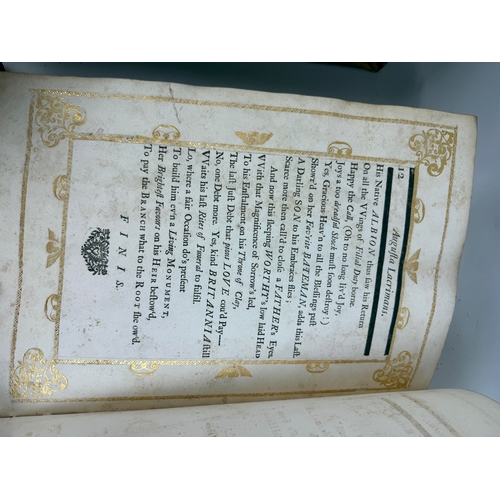 12 Augusta Lacrimans.
His Native ALBION thus saw his Return
On all the VVings of Filial Duty borne.
Happy the Call, (Oh to no long liv'd Joy,
Joys a too dreadful Shock must soon destroy!)
Yes, Gracious Heav'n to all the Blessings past
Showr'd on her Fav'rite BATEMAN, adds this Last
A Darling SON to his Embraces flies;
Scarce more then call'd to close a FATHER's Eyes.
And now this sleeping WORTHY's low laid HEAD
VVith that Magnificence of Sorrow's led,
To his Enstalment on his Throne of Clay,
The last Just Debt that pious LOVE cou'd Pay—
No, one Debt more. Yes, kind BRITANNIA still
VVaits his last Rites of Funeral to fulfil.
Lo, where a fair Occasion do's present
To build him ev'n a Living MONUMENT,
Her Brightest Favours on his HEIR bestow'd,
To pay the BRANCH what to the ROOT she ow'd.
FINIS.